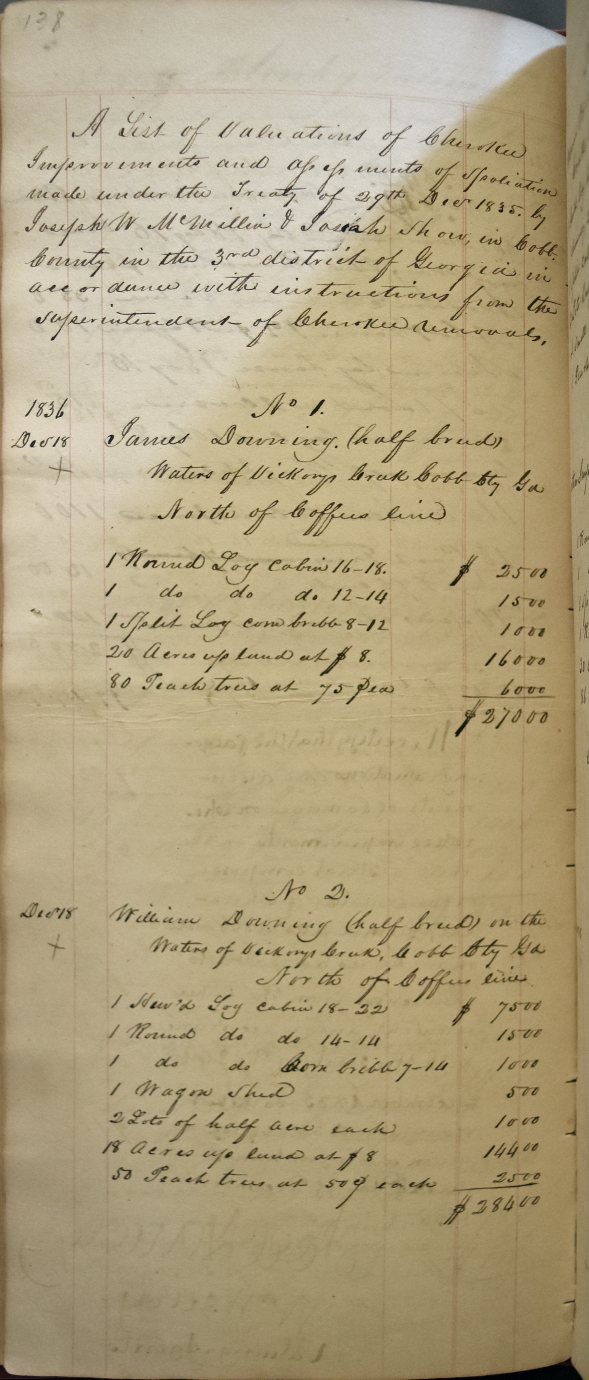 138
A List of Valuations of Cherokee
Improvements and assessments of Spoliation
made under the Treaty of 29th Decr 1835. by
Joseph W McMillin & Josiah Shaw, in Cobb
County in the 3rd district of Georgia in
accordance with instructions from the
superintendent of Cherokee removals.
1836 No 1.
Decr 18 James Downing. (half breed)
+ Waters of Vickorys Creek Cobb Cty Ga
North of Coffees line
1 Round Log cabin 16-18. $ 2500
1 do do do 12-14 1500
1 Split Log corn cribb 8-12 1000
20 Acres up land at $ 8. 16000
80 Peach trees at 75 ¢ ea 6000
$ 27000
No 2.
Decr 18 William Downing (half breed) on the
+ Waters of Vickorys Creek, Cobb Cty Ga
North of Coffees line
1 Hew'd Log cabin 18-22 $ 7500
1 Round do do 14-14 1500
1 do do Corn cribb 7-14 1000
1 Wagon Shed 500
2 Lots of half acre each 1000
18 Acres up land at $ 8 14400
50 Peach trees at 50 ¢ each 2500
$ 28400